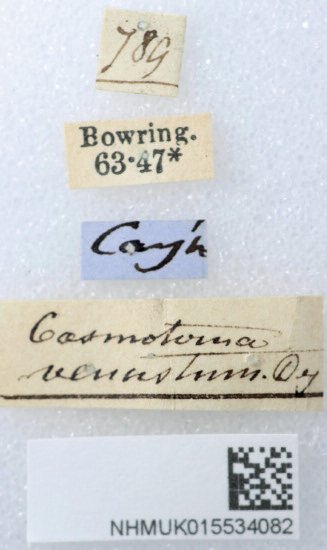 789
Bowring.
63·47*
Cosmotoma
venustum. Dj
NHMUK015534082